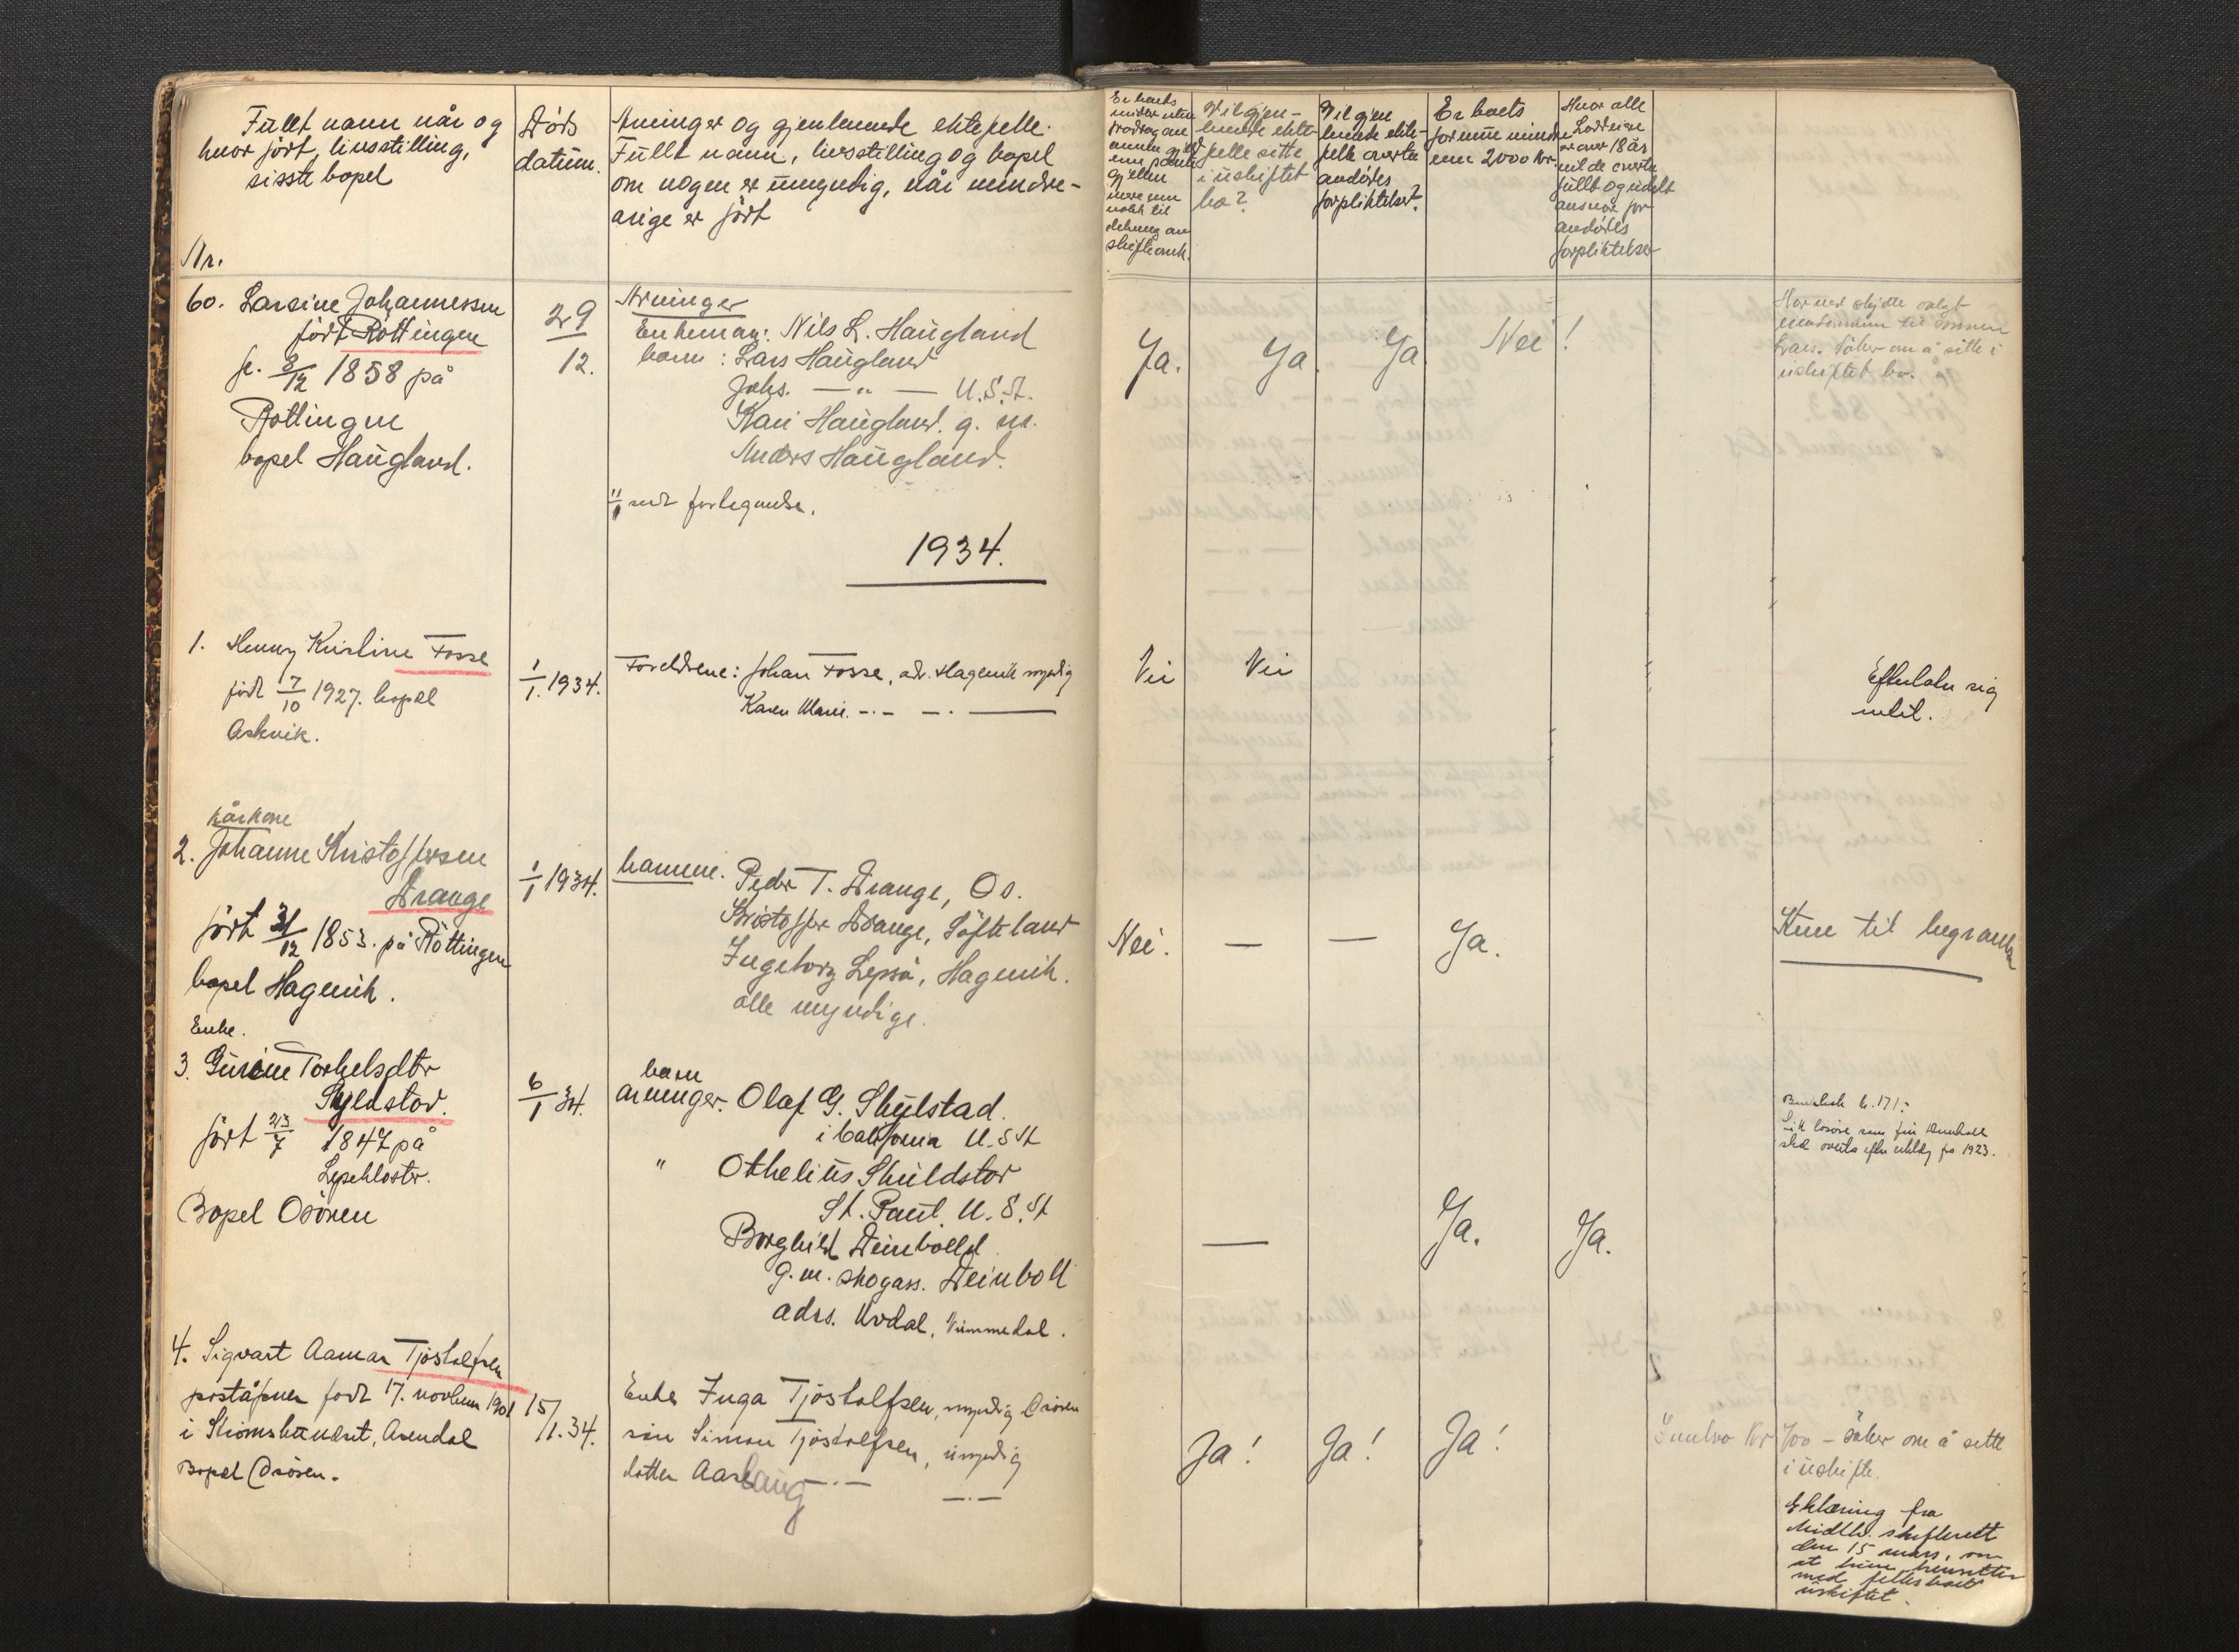 Fullt navn når og
hvor født, livsstilling,
sisste bopel
Nr.
Døds
datum.
Arvinger og gjenlevende ektefelle.
Fullt navn, livsstilling og bopel
om nogen er umyndig, når mindre-
årige er født
Er boets
midler uten
fradrag av
annen gjeld
enn pante
gjelden
mere enn
nokk til
dekning av
skifteomk.
Vil gjen-
levende ekte-
felle sitte
i uskiftet
bo?
Vil gjen
levende ekte-
felle overta
avdødes
forpliktelser?
Er boets
formue mindre
enn 2000 kr
Hvor alle
Loddeiere
er over 18 år
vil de overta
fullt og udelt
ansvar for
avdødes
forpliktelser
60. Larsine Johannessen
født Røttingen
f. 3/12 1858 på
Røttingen
bopel Haugland.
29
12.
Arvinger
Enkeman: Nils L. Haugland
barn: Lars Haugland
Johs. — " — U.S.A.
Kari Haugland. g. m.
Anders Haugland.
Ja.
Ja
Ja
Nei!
søker om å sitte i
uskiftet bo.
1934.
1. Henny Kristine Fosse
født 7/10 1927. bopel
Askvik.
1/1. 1934.
Foreldrene: Johan Fosse, adr. Hagevik myndig
Karen Marie. -·- -·-
Nei
Nei
Efterlater sig
intet.
kårkone
2. Johanne Kristoffersen
Drange
født 31/12 1853. på Røttingen
bopel Hagevik.
1/1 1934.
barnene. Peder T. Drange, Os.
Kristoffer Drange, Søfteland
Ingeborg Lepsø, Hagevik.
alle myndige.
Nei.
—
—
Ja.
Kun til begravelse
Enke.
3. Gurine Torkelsdtr
Skjelstad.
født 23/7 1847 på
Lysekloster.
Bopel Osøren
6/1 34.
barn
arvinger. Olaf G. Skulstad.
i California U.S.A
" Othelius Skuldstad
St. Paul. U.S.A
Borghild Deinboll
g.m. skogass. Deinboll
adrs. Uvdal, Nummedal.
—
Ja.
Ja.
fra 1923.
4. Sigvart Aamar Tjøstolfsen
poståpner født 17. november 1901
i Strømsbunesset, Arendal
Bopel Osøren.
15/
1.34.
Enke Inga Tjøstolfsen, myndig Osøren
søn Simon Tjøstolfsen, umyndig
datter Aaslaug -·- -·-
Ja!
Ja!
Ja!
Innbo Kr 700 – søker om å sette
i uskifte.
Erklæring fra
Midthl. skifterett
den 15 mars, om
at hun hensitter
med felles boet
uskiftet.